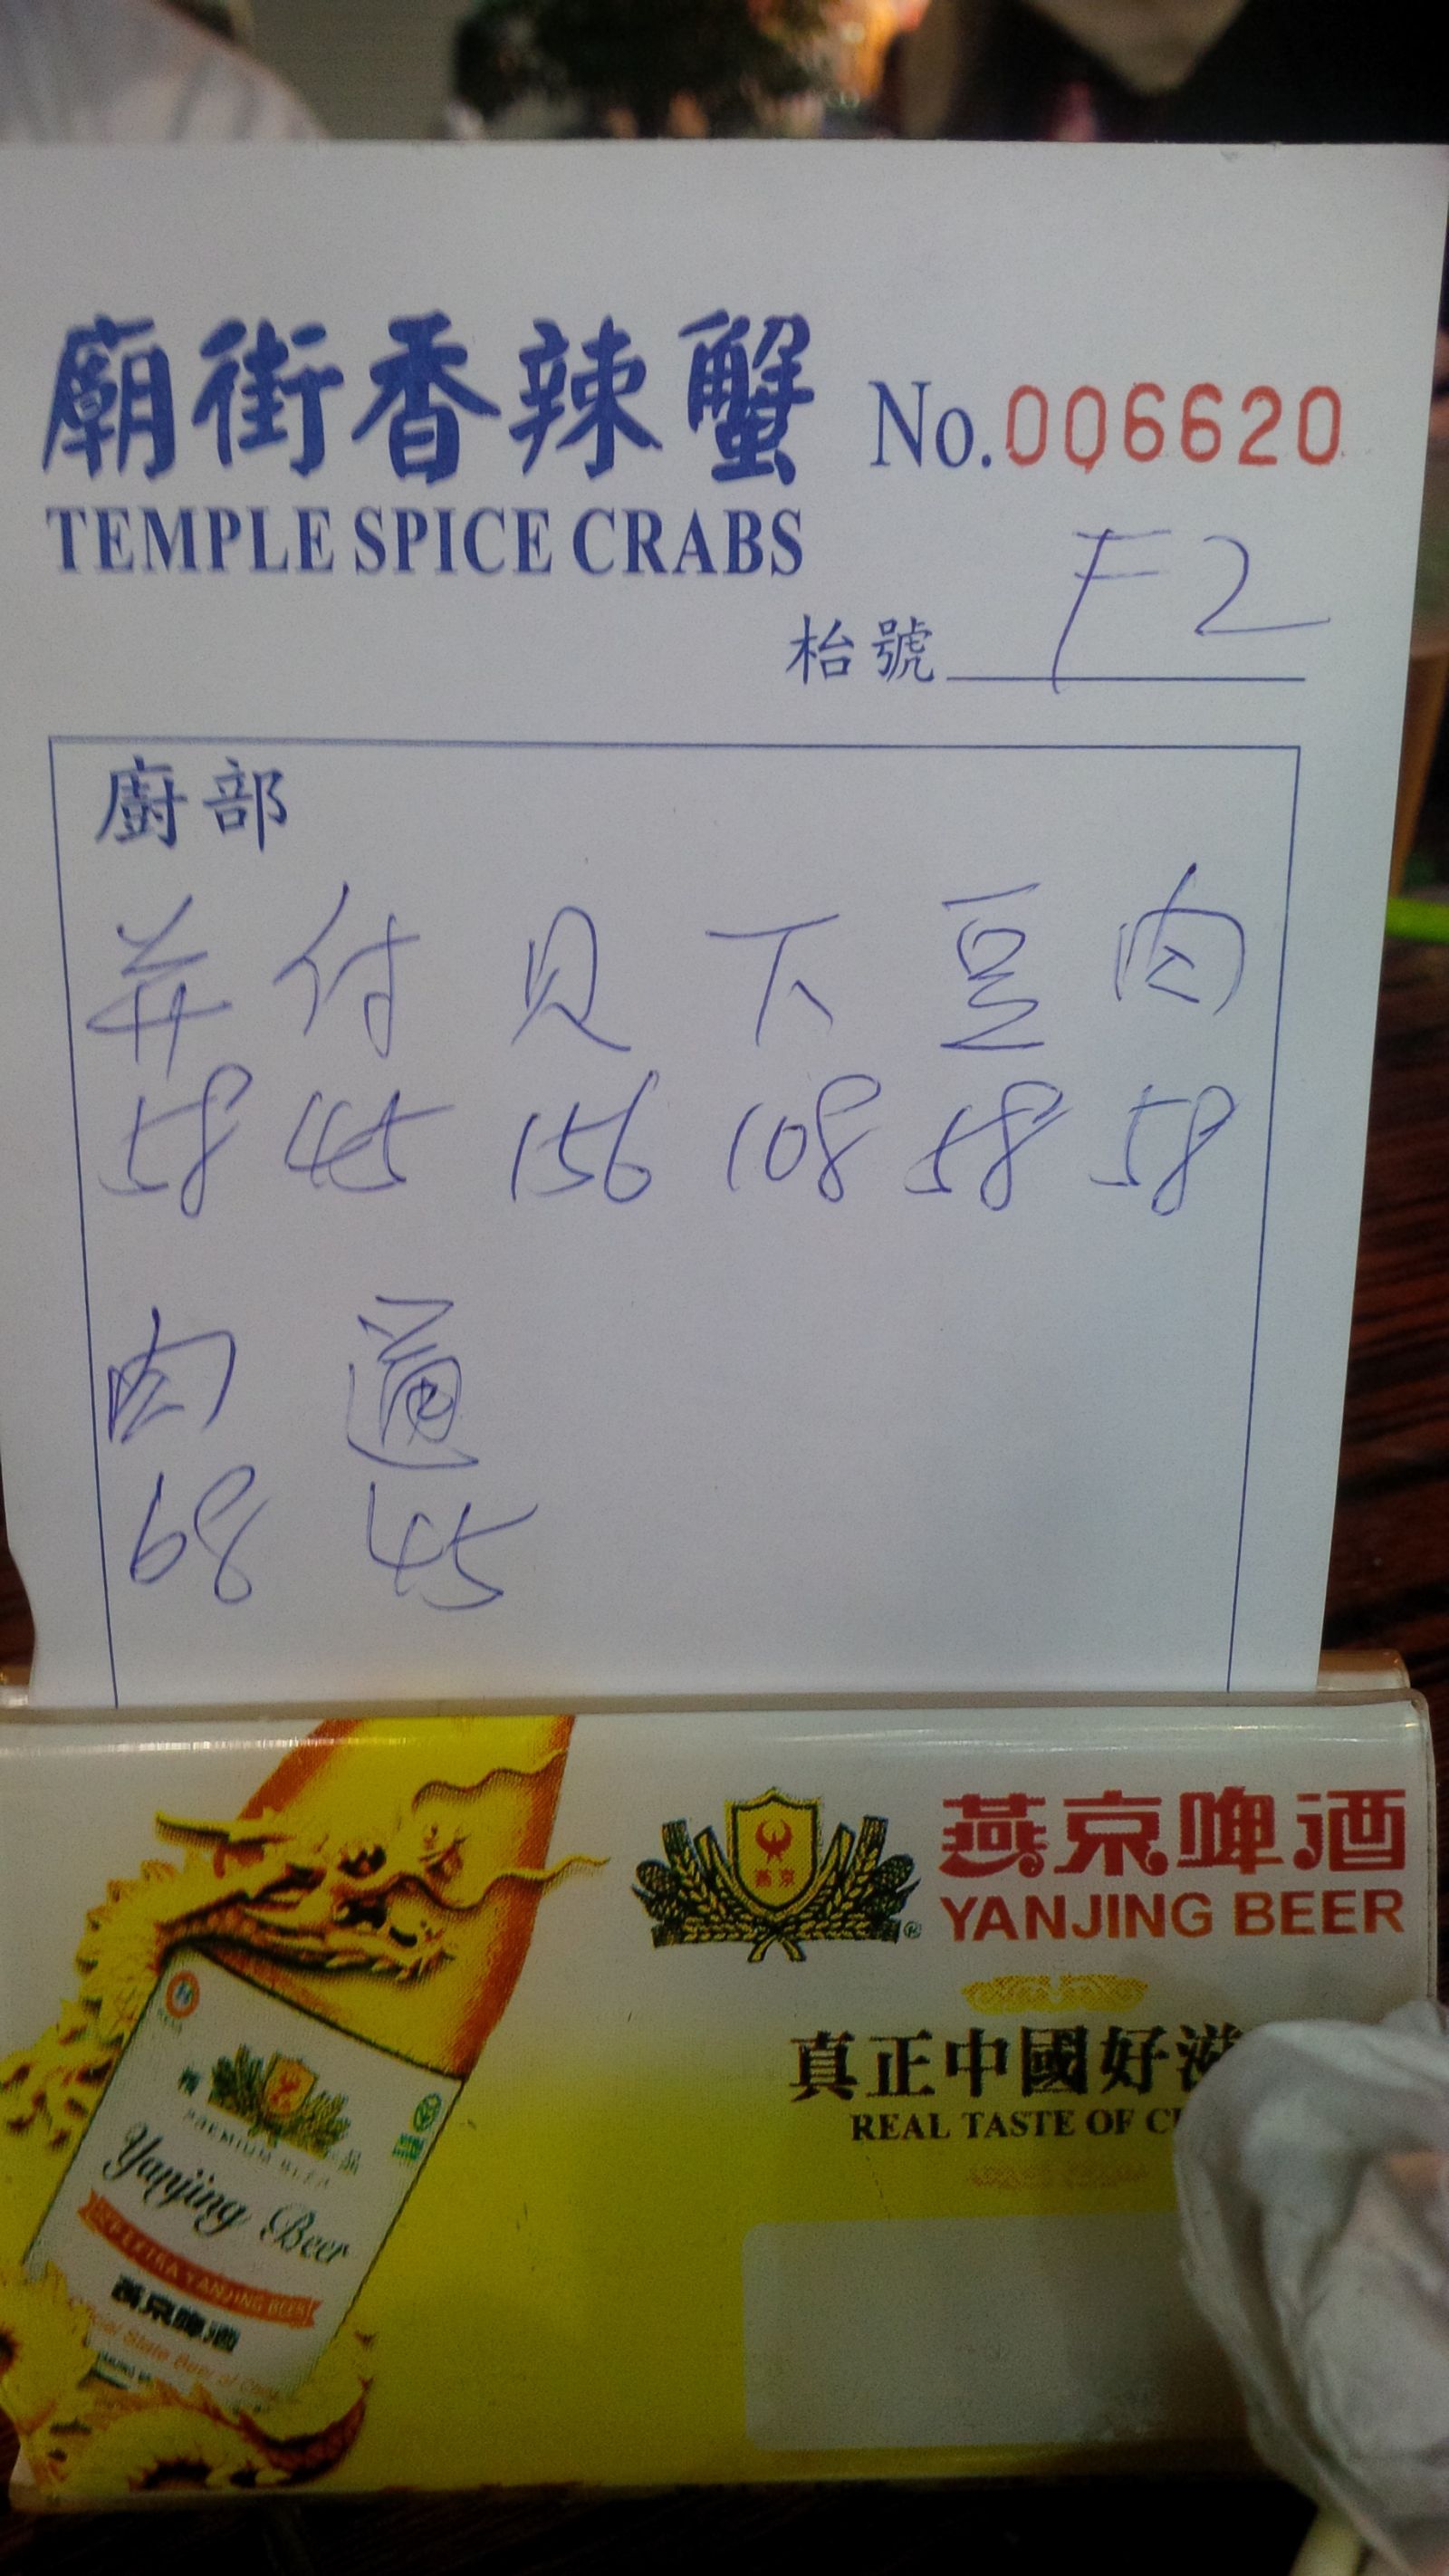 廟街香辣蟹 No.006620
TEMPLE SPICE CRABS
枱號 F2
廚部
付 贝 下 豆 肉
58 45 156 108 58 58
肉 通
68 45
燕京
燕京啤酒
YANJING BEER
真正中國好滋
REAL TASTE OF C
PREMIUM BEER
Yanjing Beer
EXTRA YANJING BEER
燕京啤酒
Official State Beer of China